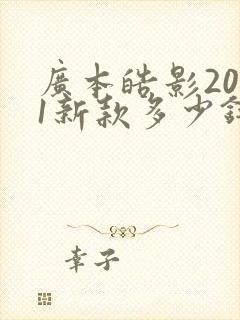 廣本皓影20
1新款多少
幸子